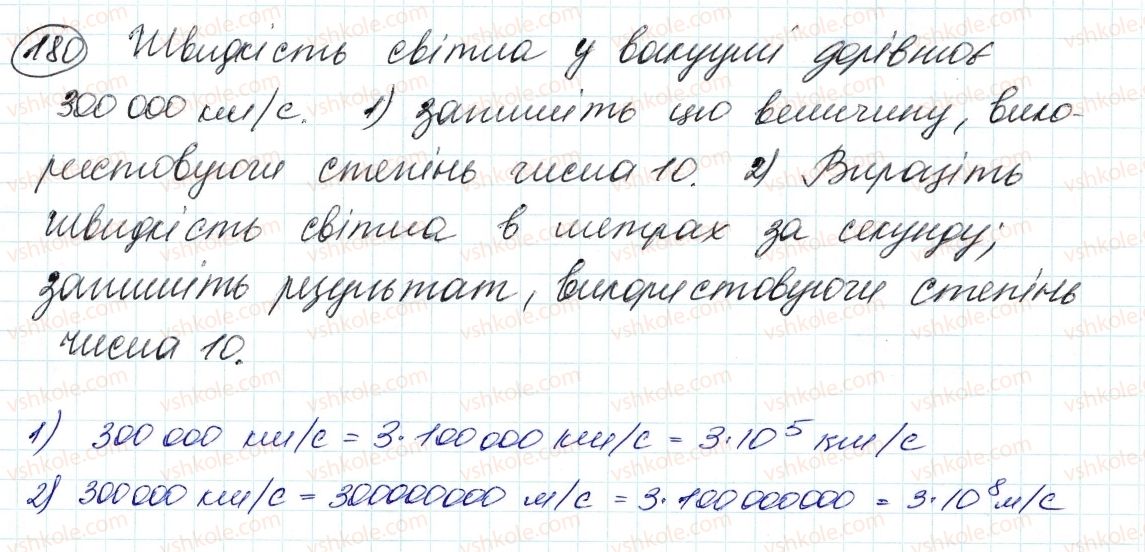 180 Швидкість світла у вакуумі дорівнює
300 000 км/с. 1) запишіть цю величину, вико-
ристовуючи степінь числа 10. 2) Виразіть
швидкість світла в метрах за секунду;
запишіть результат, використовуючи степінь
числа 10.
1) 300 000 км/с = 3·100 000 км/с = 3·10⁵ км/с
2) 300000 км/с = 300000000 м/с = 3·100000000 = 3·10⁸ м/с
vshkole.com